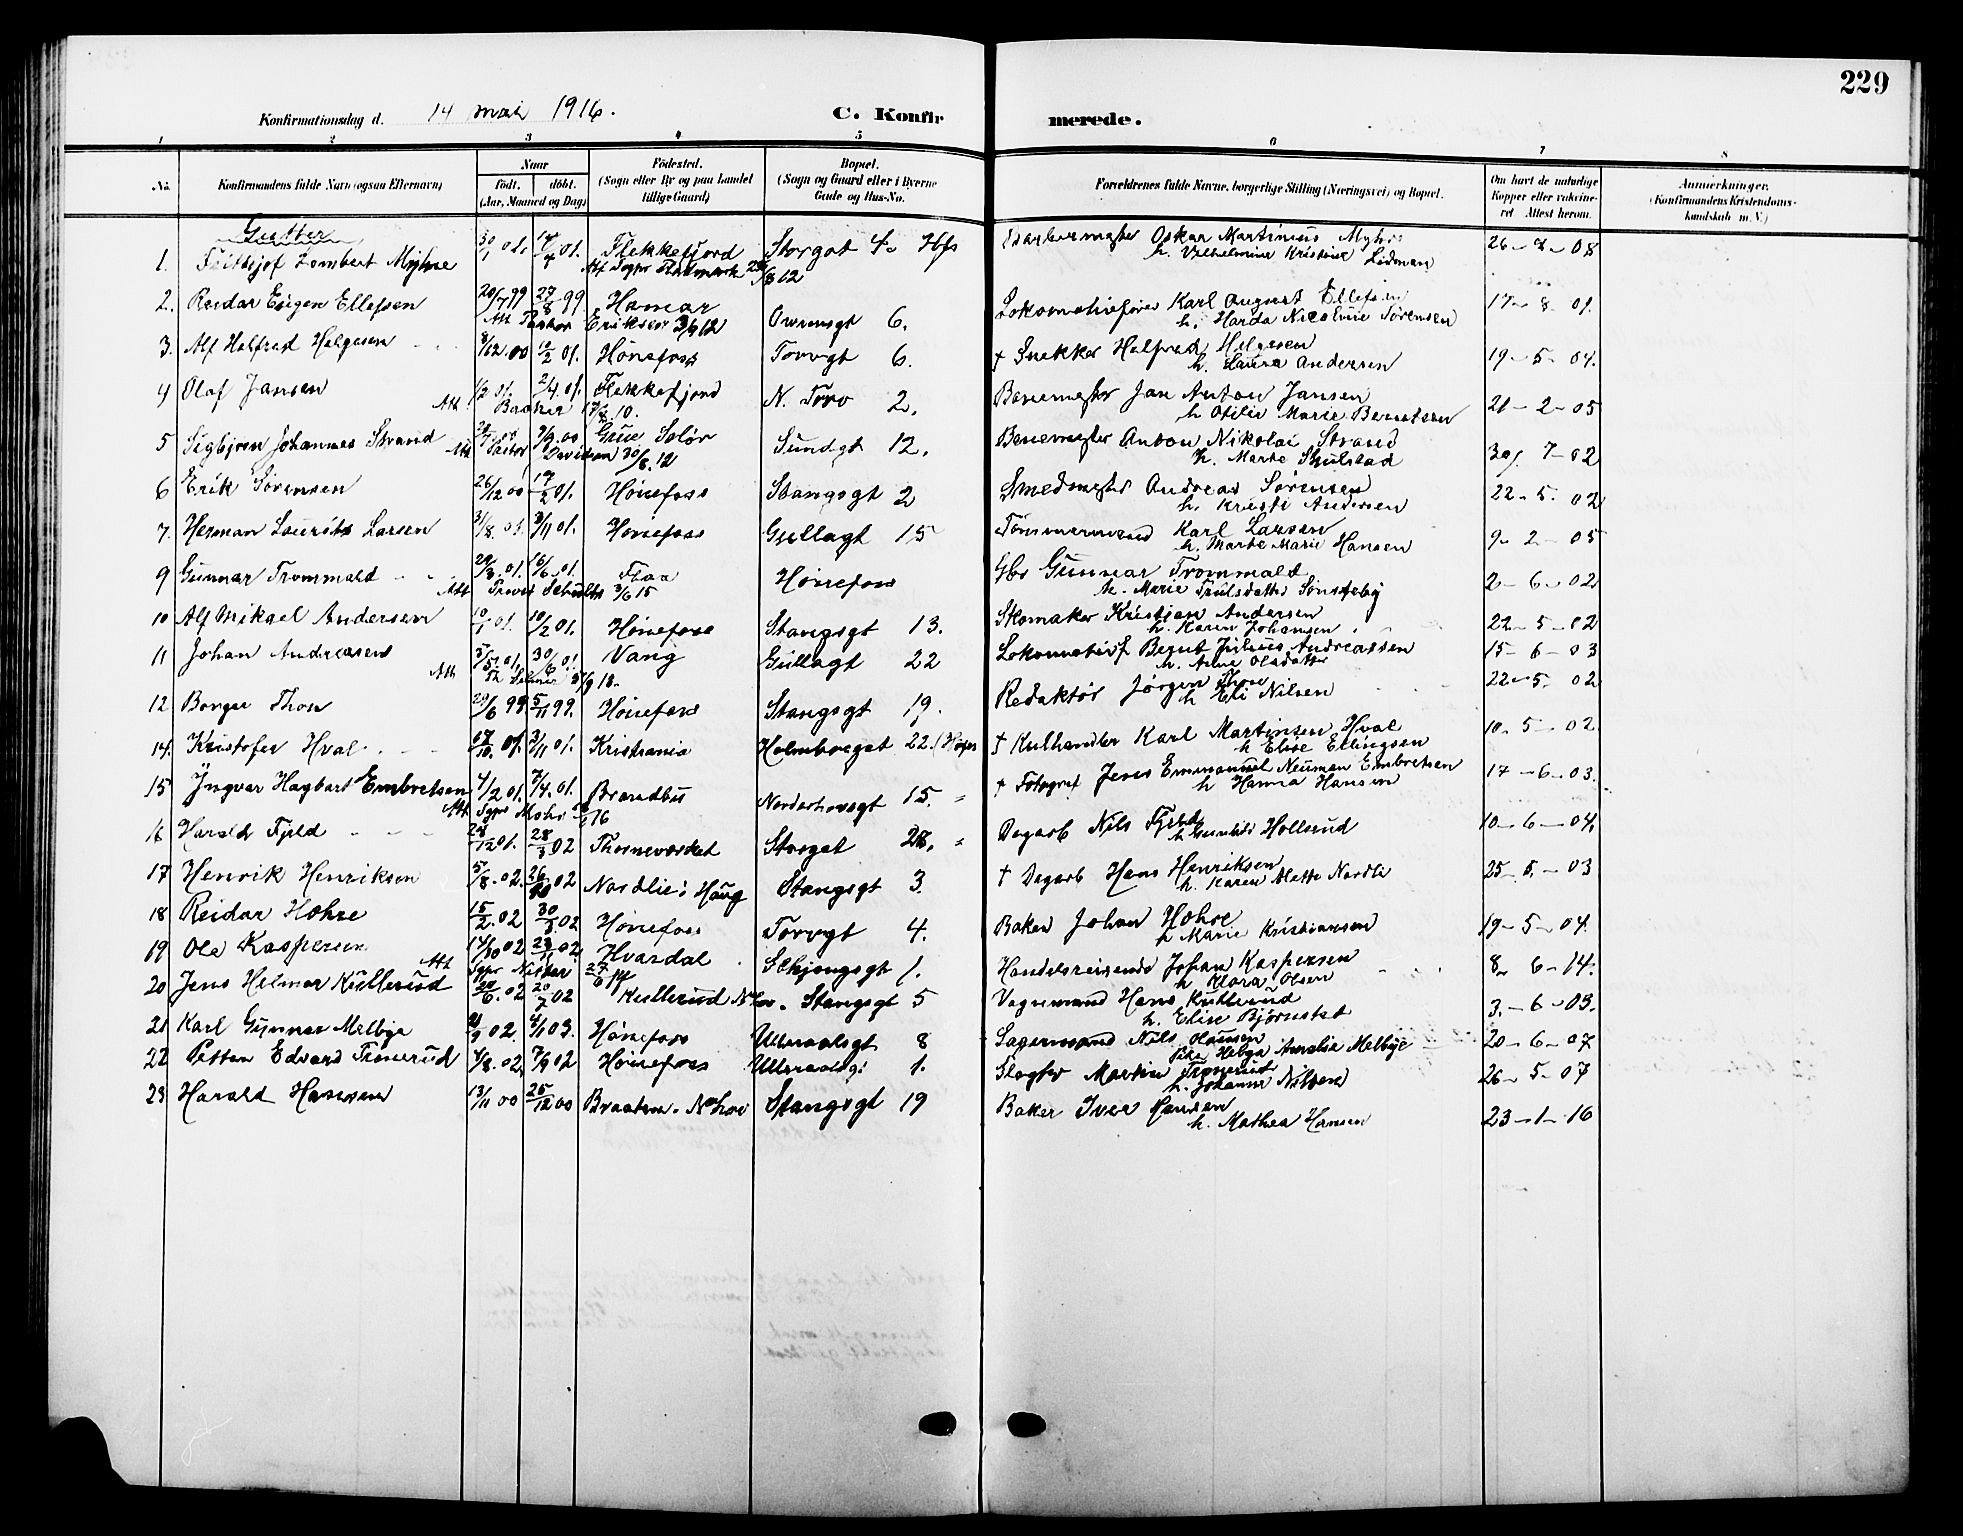 229
Konfirmationsdag d. 14 mai 1916. C. Konfir merede.
1 2 3 4 5 6 7 8
No. Konfirmandens fulde Navn (ogsaa Efternavn) Naar født. døbt. (Aar, Maaned og Dag) Fødested. (Sogn eller By og paa Landet tillige Gaard) Bopæl. (Sogn og Gaard eller i Byerne Gade og Hus-No. Forældrenes fulde Navne, borgerlige Stilling (Næringsvei) og Bopæl. Om havt de naturlige Kopper eller vakcineret Attest herom. Anmærkninger. (Konfirmandens Kristendomskundskab m. V.)
Gutter
1. Frithjof Lambert Myhre 30/1 01. 14/4 01. Flekkefjord Storgat 4. Hfs Oskar Martinius Myhre 26-7-08
h. Vilhelmine Kristine Lidman
2. Reidar Eugen Ellefsen 20/7 99 27/8 99 Hamar Owrensgt 6. Lokomotivfører Karl August Ellefsen 17-8-01.
Att Pastor Eriksen 3/9 12 h. Harda Nicoline Sørensen
3. Alf Halfred Helgesen 8/12 00 10/2 01. Hønefoss Torvgt 6. † Snekker Halfred Helgesen 19-5-04.
h. Laura Andersen
4 Olaf Jansen 1/2 01. 2/4 01. Flekkefjord N. Torv 2. Banemester Jan Anton Jansen 21-2-05
h. Otilie Marie Berntsen
5 Sigbjørn Johannes Strand 9/9 00 Grue Solør Sundgt 12. Banemester Anton Nikolai Strand 30/7-02
Att Pastor Davidsen 30/8.12 h. Marte Skulstad
6 Erik Sørensen 26/12 00 17/2 01. Hønefoss Stangsgt 2 Smedmester Andreas Sørensen 22-5-02
h. Kristi Andersen
7. Herman Laurits Larsen 31/8. 01. 3/11 01. Hønefoss Gullagt 15 Tømmermand Karl Larsen 9-2-05
h. Marte Marie Hansen
9 Gunnar Trommald 29/3. 01. 16/6 01. Flaa Hønefoss Gbr Gunnar Trommald 2-6-02
Att Provst Schultz 3/6 15 h. Marie Trulsdatter Sønsteby
10 Alf Mikael Andersen 10/1 01. 10/2 01. Hønefoss Stangsgt 13. Skomaker Kristian Andersen 22-5-02
h. Karen Johansen
11 Johan Andreasen 5/5 01. 30/6 01. Vang Gullagt 22 Lokomotivf. Bernt Julius Andreassen 15-6-03
Att h. Anne Olsdatter
12 Borger Thon 20/6 99. 5/11 99. Hønefoss Stangsgt 19. Redaktør Jørgen Thon 22-5-02
h Eli Nilsen
14. Kristofer Hval 3/11 01. Kristiania Holmboegat 22. † Kulhandler Karl Martinsen Hval 10-5-02
h Elise Ellingsen
15 Yngvar Hagbart Embretsen 4/2 01. 7/4 01. Brandbu Norderhovsgt 15. " † Fotograf Jens Emmanuel Neuman Embretsen 17-6-03.
Att Sgpr Mohr h Hanna Hansen
16 Harald Fjeld 28/12 01. 28/3 02 Thorneverket Storgat 28. " Dagarb Nils Fjeld 10-6-04.
h Gunhild Hollerud
17 Henrik Henriksen 5/8. 02. 26/10 02 Nordlie i Haug Stangsgt 3. † Dagarb Hans Henriksen 25-5-03
h. Karen Mette Nordli
18 Reidar Hohre 15/2. 02 30/3. 02 Hønefoss Torvgt 4. Baker Johan Hohre 19-5-04.
h Marie Kristiansen
19 Ole Kaspersen 14/10 02 23/11 02. Hvasdal Schjongsgt 1. Handelsreisende Johan Kaspersen 8-6-14.
Att Sgpr h Klara Olsen
20 Jens Helmer Kullerud 20/6. 02 20/7 02 Kullerud N.hov. Stangsgt 5 Vognmand Hans Kullerud 3.-6-03.
h. Elise Bjørnstad
21 Karl Gunnar Melbye 02. 4/1 03. Hønefoss Ulleraalsgt 8 Sagarmand Nils Hansen 20-6-07
Pike Helga Amalia Melbye
22 Petter Edvard Tronerud 4/8. 02. 7/9 02 Hønefoss Ulleraalsgt 1. Slagter Martin Tronerud 26-5-07
h. Johanne Nilsen
23 Harald Hansen 13/11 00 25/12 00 Braaten. N.hov Stangsgt 19 Baker Iver Hansen 23-1-16
h. Mathea Hansen